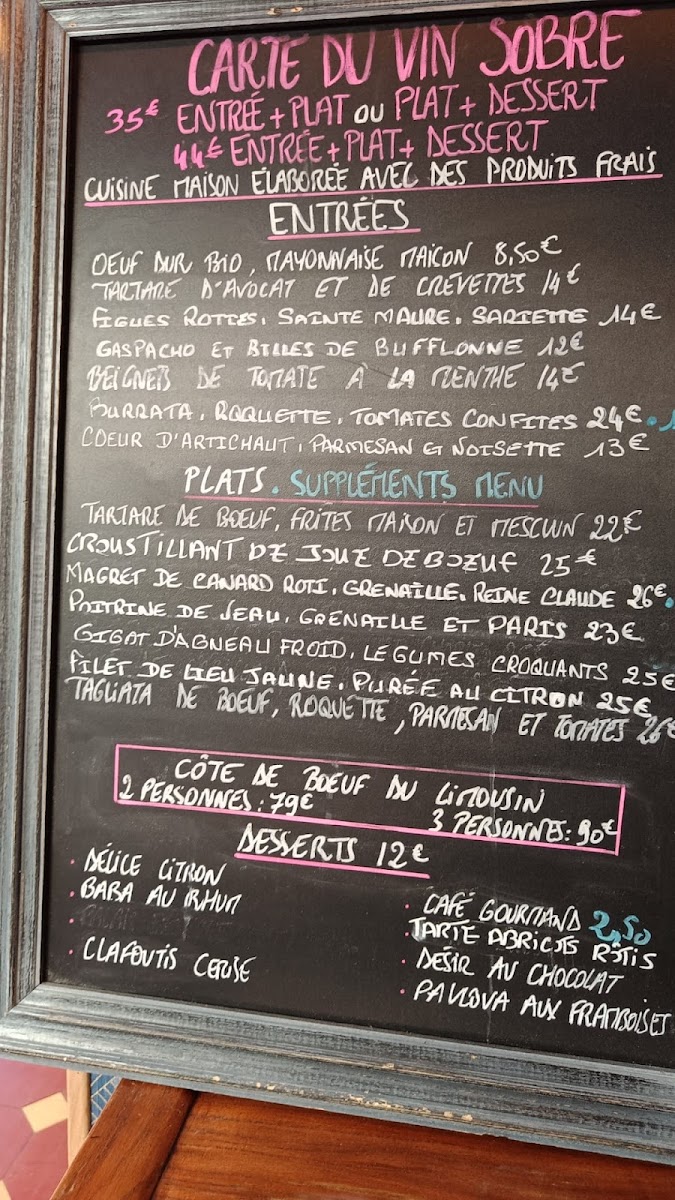 CARTE DU VIN SOBRE
35€ ENTRÉE + PLAT OU PLAT + DESSERT
44€ ENTRÉE + PLAT + DESSERT
CUISINE MAISON ÉLABORÉE AVEC DES PRODUITS FRAIS
ENTRÉES
OEUF DUR BIO, MAYONNAISE MAICON 8,50€
TARTARE D'AVOCAT ET DE CREVETTES 14€
FIGUES ROTIES. SAINTE MAURE. SARIETTE 14€
GASPACHO ET BILLES DE BUFFLONNE 12€
BEIGNETS DE TOMATE À LA MENTHE 14€
BURRATA. ROQUETTE. TOMATES CONFITES 24€
COEUR D'ARTICHAUT, PARMESAN ET NOISETTE 13€
PLATS. SUPPLÉMENTS MENU
TARTARE DE BOEUF, FRITES MAISON ET MESCLUN 22€
CROUSTILLANT DE JOUE DE BOEUF 25€
MAGRET DE CANARD ROTI. GRENAILLE. REINE CLAUDE 26€
POITRINE DE VEAU, GRENAILLE ET PARIS 23€
GIGOT D'AGNEAU FROID, LÉGUMES CROQUANTS 25€
FILET DE LIEU JAUNE. PURÉE AU CITRON 25€
TAGLIATA DE BOEUF, ROQUETTE, PARMESAN ET TOMATES 26€
CÔTE DE BOEUF DU LIMOUSIN
2 PERSONNES: 79€ 3 PERSONNES: 90€
DESSERTS 12€
DÉLICE CITRON
BABA AU RHUM
CLAFOUTIS CERISE
CAFÉ GOURMAND 2,50
TARTE ABRICOTS RÔTIS
DÉSIR AU CHOCOLAT
PAVLOVA AUX FRAMBOISES